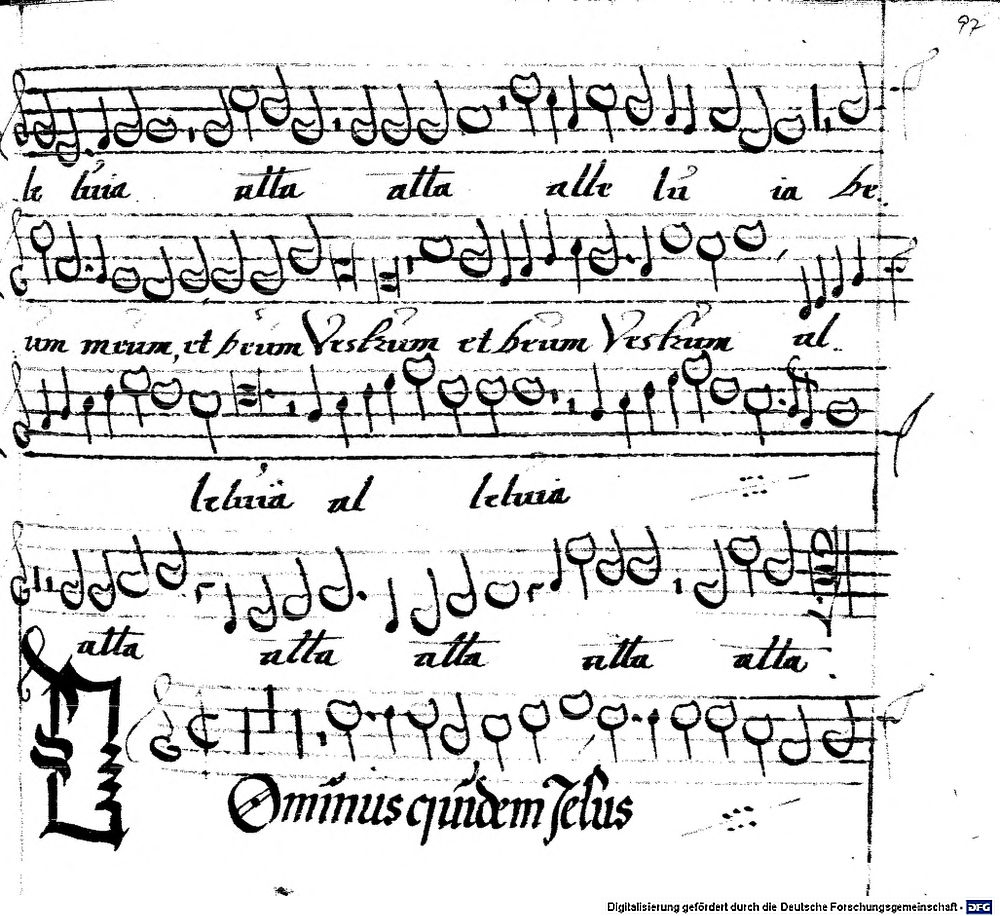 97
le luia alla alla alle lu ia de
um meum, et deum Vestrum et deum Vestrum al
leluia al leluia
alla alla alla alla alla
Dominus quidem Jesus
Digitalisierung gefördert durch die Deutsche Forschungsgemeinschaft - DFG